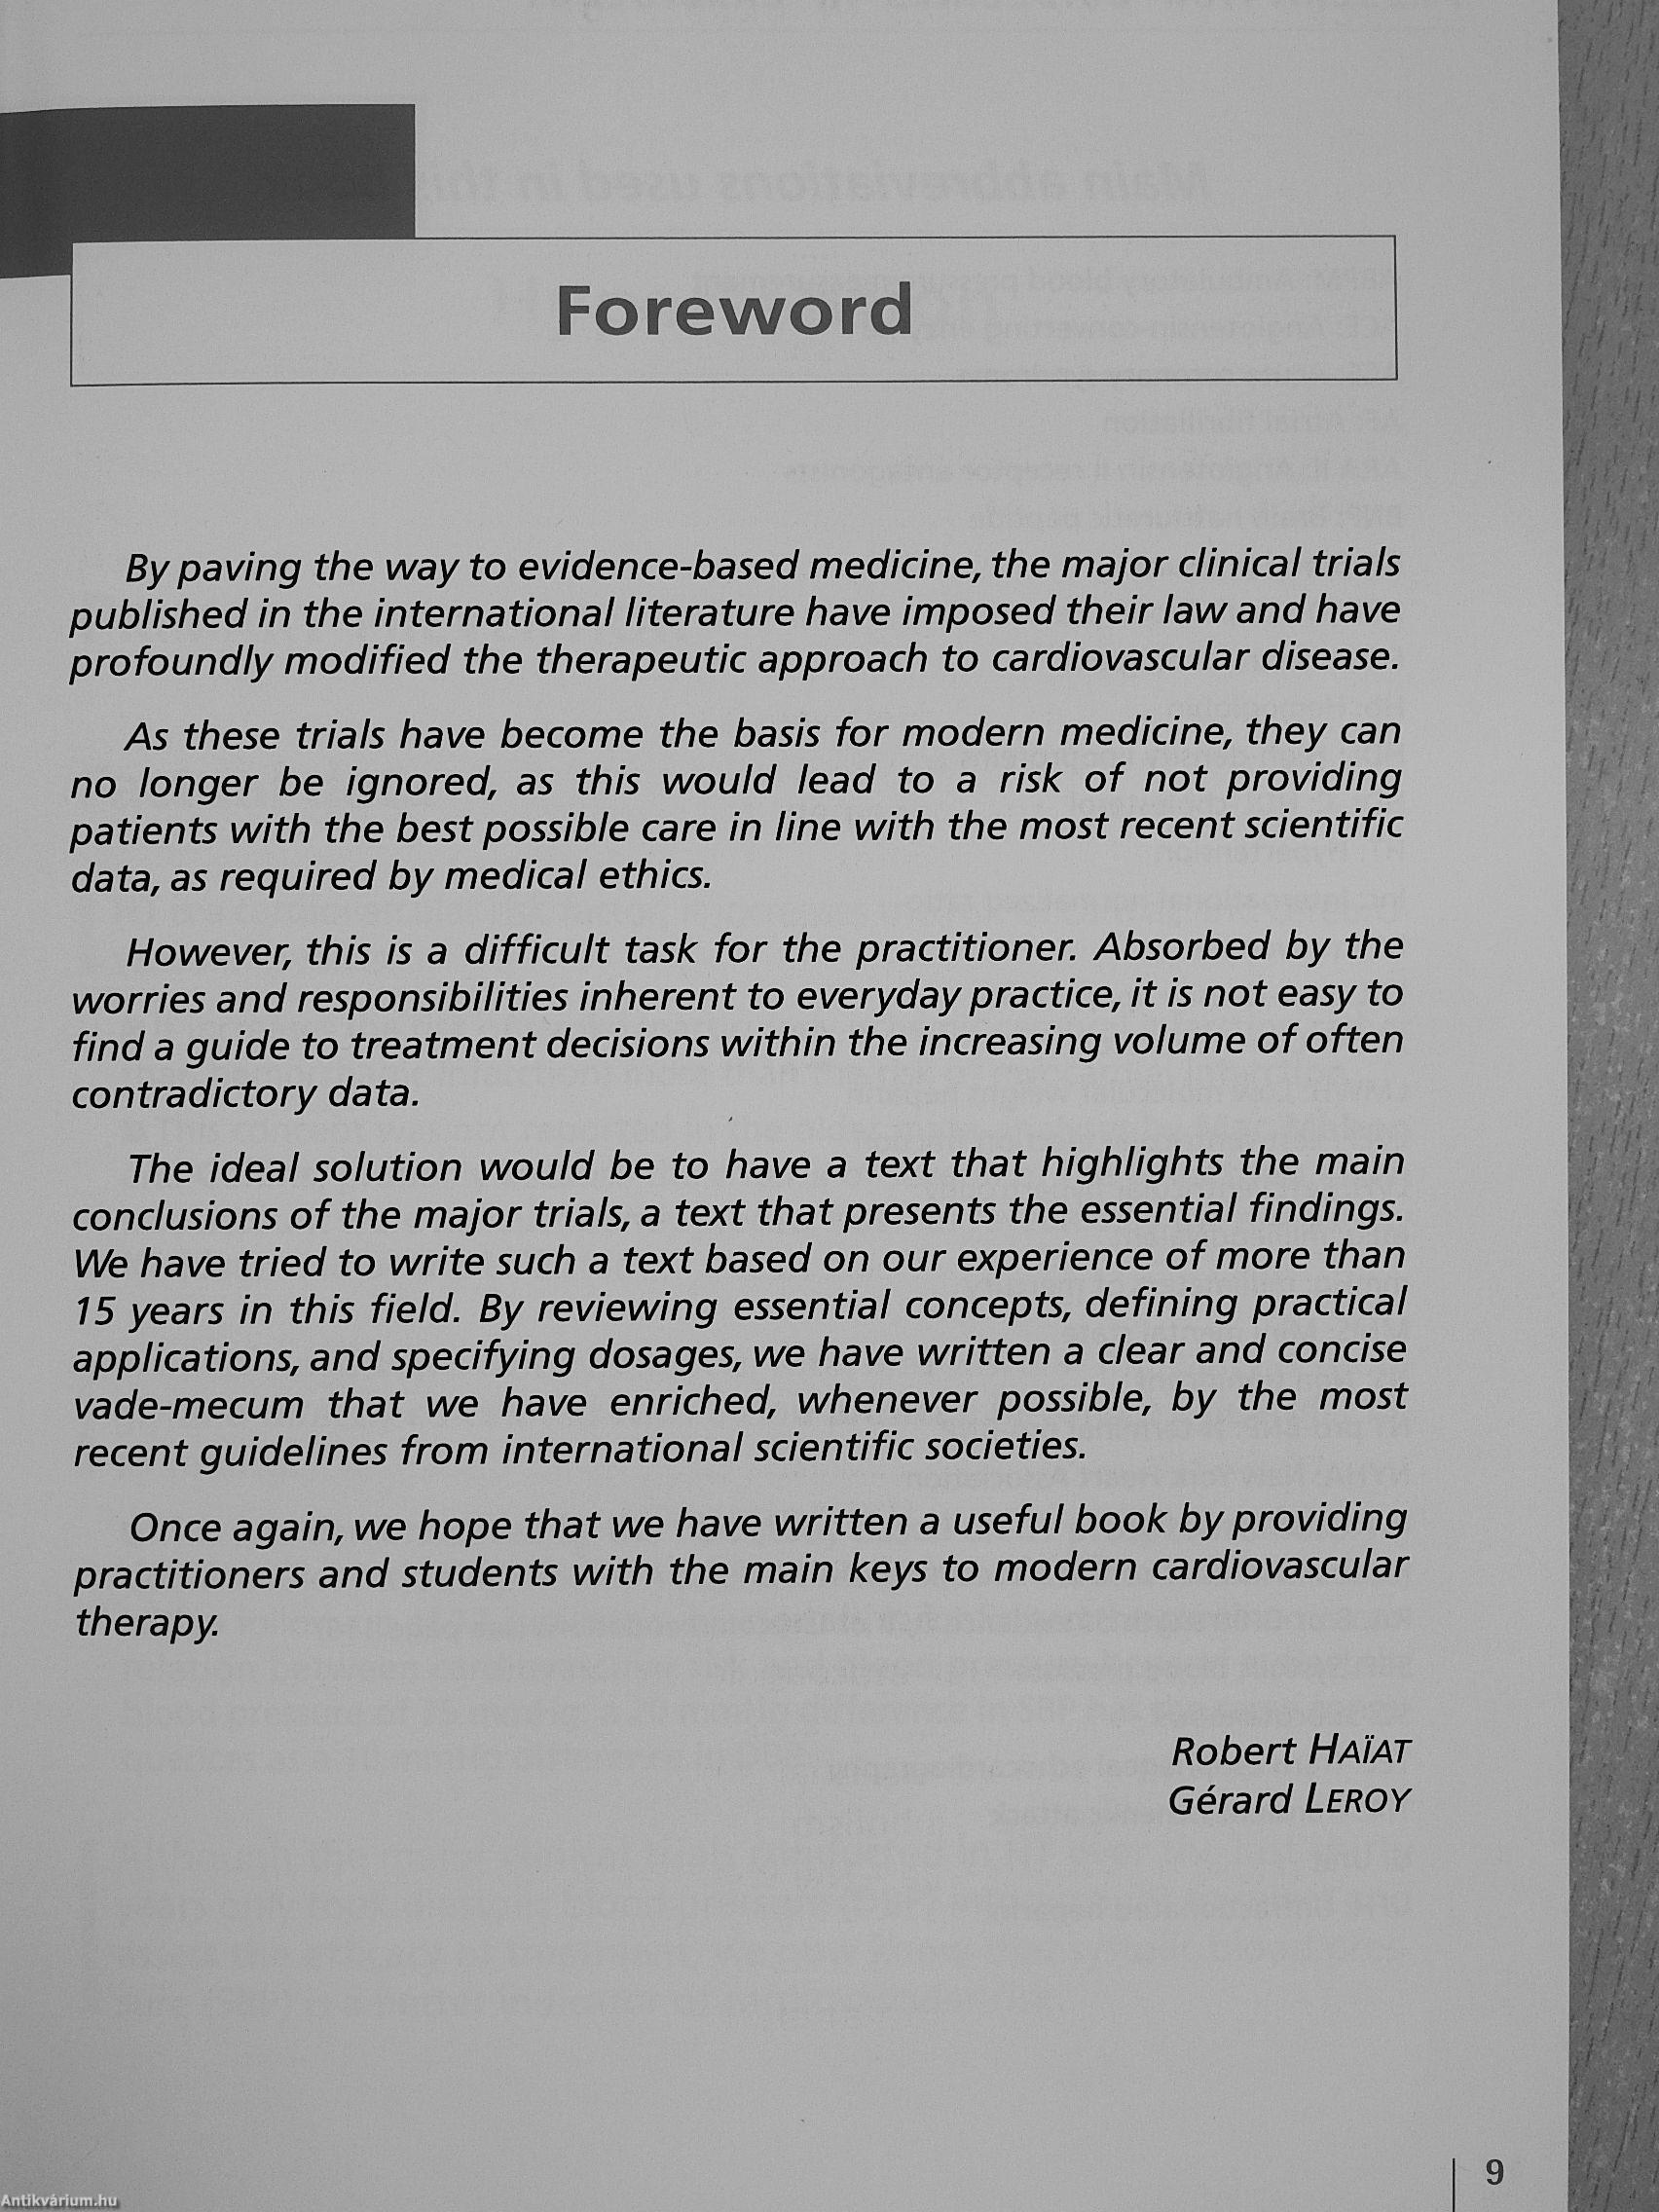 Foreword
By paving the way to evidence-based medicine, the major clinical trials
published in the international literature have imposed their law and have
profoundly modified the therapeutic approach to cardiovascular disease.
As these trials have become the basis for modern medicine, they can
no longer be ignored, as this would lead to a risk of not providing
patients with the best possible care in line with the most recent scientific
data, as required by medical ethics.
However, this is a difficult task for the practitioner. Absorbed by the
worries and responsibilities inherent to everyday practice, it is not easy to
find a guide to treatment decisions within the increasing volume of often
contradictory data.
The ideal solution would be to have a text that highlights the main
conclusions of the major trials, a text that presents the essential findings.
We have tried to write such a text based on our experience of more than
15 years in this field. By reviewing essential concepts, defining practical
applications, and specifying dosages, we have written a clear and concise
vade-mecum that we have enriched, whenever possible, by the most
recent guidelines from international scientific societies.
Once again, we hope that we have written a useful book by providing
practitioners and students with the main keys to modern cardiovascular
therapy.
Robert HAÏAT
Gérard LEROY
9
Antikvárium.hu